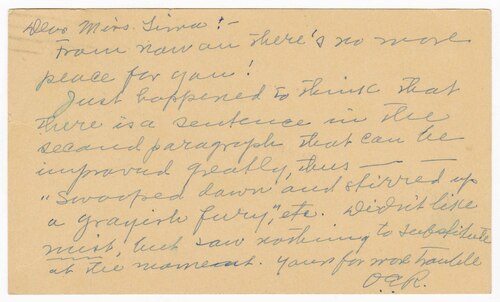 Dear Miss Sirra!-
From now on there's no more
peace for you!
Just happened to think that
there is a sentence in the
second paragraph that can be
improved greatly, thus —
"Swooped down and stirred up
a grayish fury", etc. Didn't like
mist, but saw nothing to substitute
at the moment. Yours for more trouble
O.G.R.